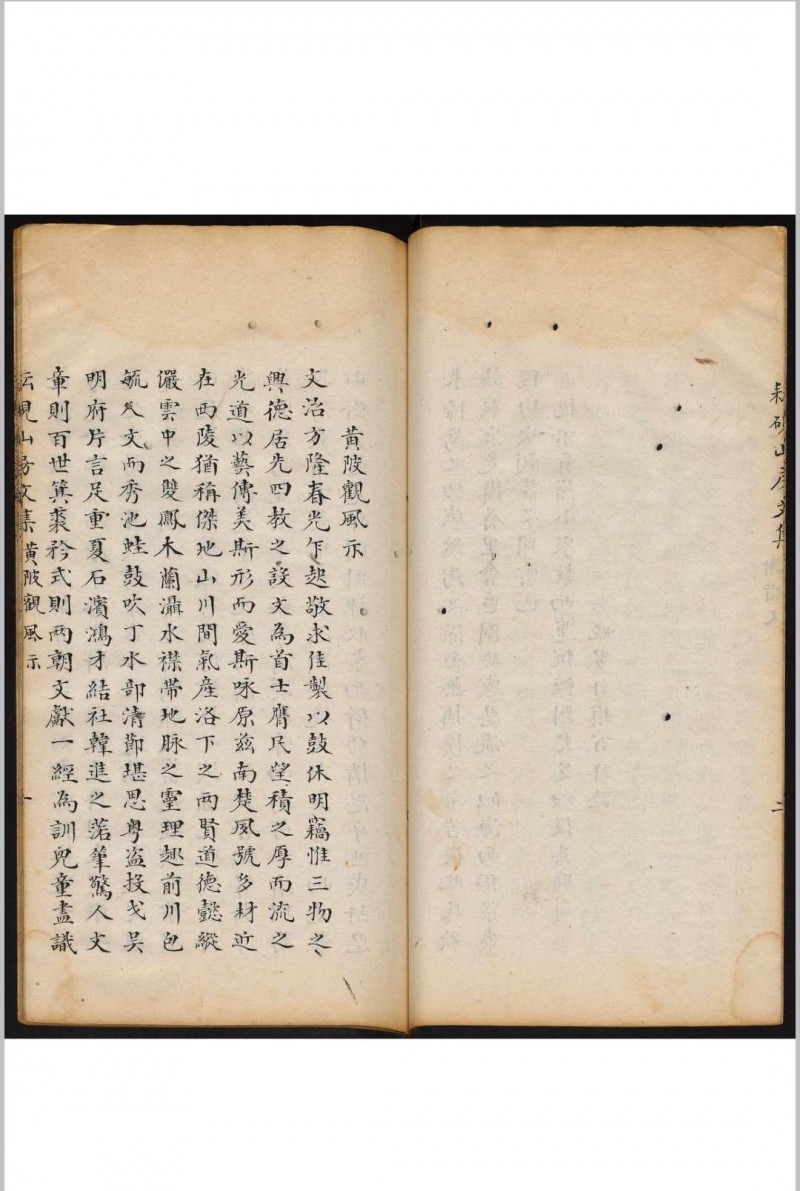 耕硯山房文集
二
黃陂觀風示
文治方隆春光乍起敬求佳製以鼓休明竊惟三物之
興德居先四教之設文為首士膺民望積之厚而流之
光道以藝傳美斯形而愛斯咏原茲南楚夙號多材近
在西陵猶稱傑地山川間氣産洛下之两賢道德懿縱
儼雲中之雙鳳木蘭灄水襟帶地脉之靈理趣前川包
毓人文而秀池蛙鼓吹丁水部清節堪思粤盗投戈吴
明府片言足重夏石濱鴻才結社韓進之落筆驚人文
章則百世箕裘矜式則两朝文獻一經為訓兒童盡識
硯山房文集黃陂觀風示
一